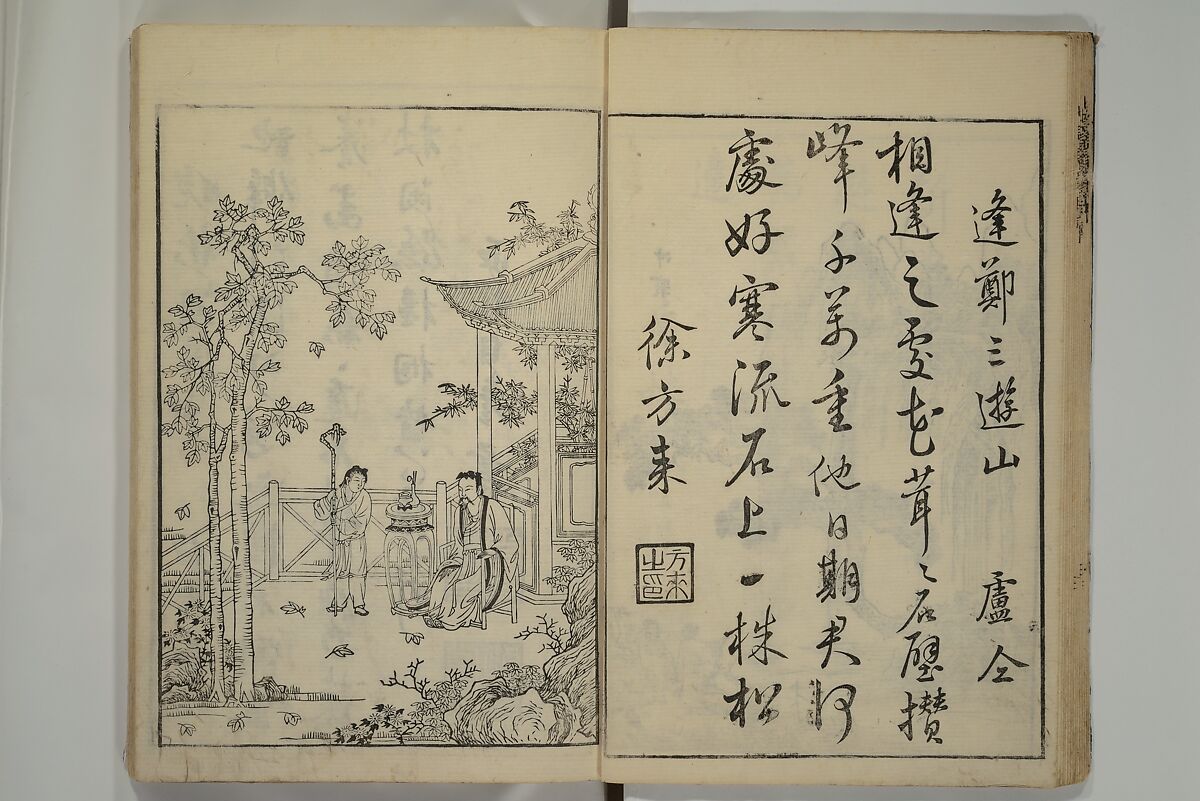 逢鄭三遊山　盧仝
相逢之處花茸〻石壁攢
峰千萬重他日期君何
處好寒流石上一株松
徐方来
方来之印